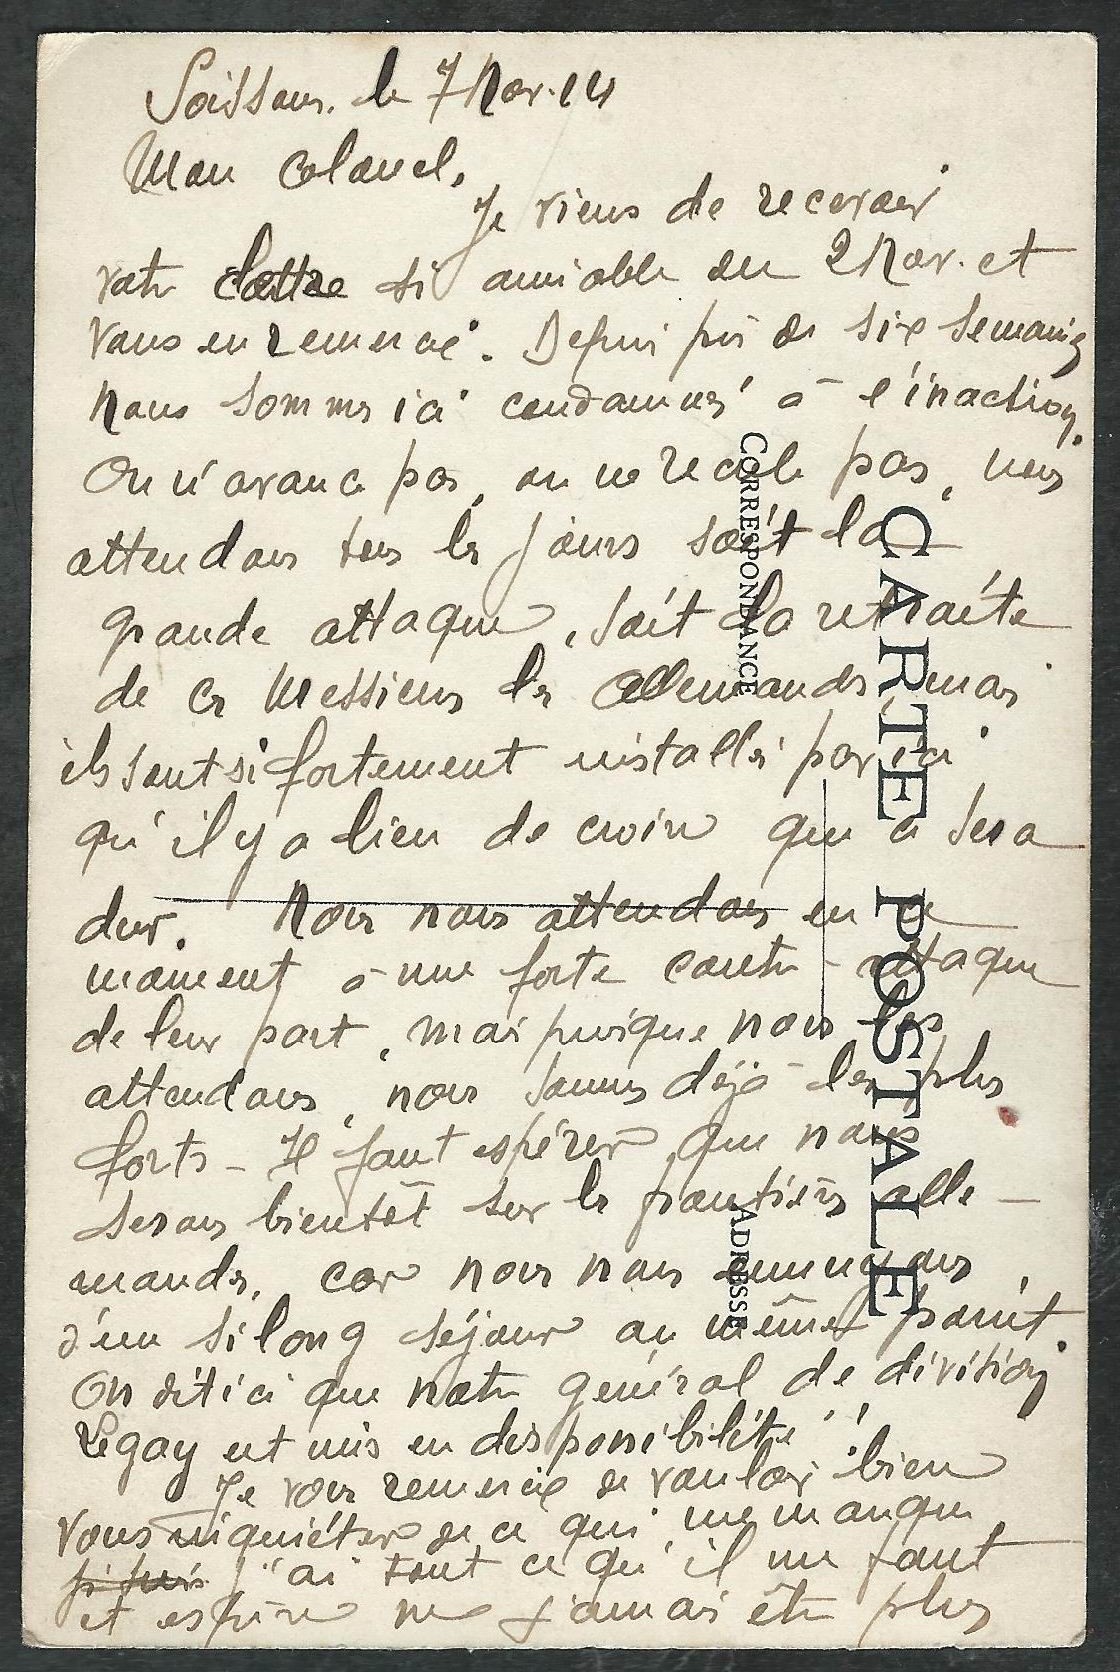 Soissons. le 7 Nov. 14
Mon Colonel,
Je viens de recevoir
votre lettre si aimable du 2 Nov. et
vous en remercie. Depuis près de six semaines
nous sommes ici condamnés à l'inaction.
On n'avance pas, on ne recule pas, nous
attendons tous les jours soit la
grande attaque, soit la retraite
de ces Messieurs les Allemands, mais
ils sont si fortement installés par ici
qu'il y a lieu de croire que ce sera
dur. Nous nous attendons en ce
moment à une forte contre-attaque
de leur part, mais puisque nous les
attendons, nous sommes déjà les plus
forts - Il faut espérer que nous
serons bientôt sur les frontières alle-
mandes, car nous nous ennuyons
d'un si long séjour au même point.
On dit ici que notre général de division
Legay est mis en disponibilité!
Je vous remercie de vouloir bien
vous inquiéter de ce qui me manque,
j'ai tout ce qu'il me faut
et espère ne jamais être plus
CARTE POSTALE
CORRESPONDANCE
ADRESSE